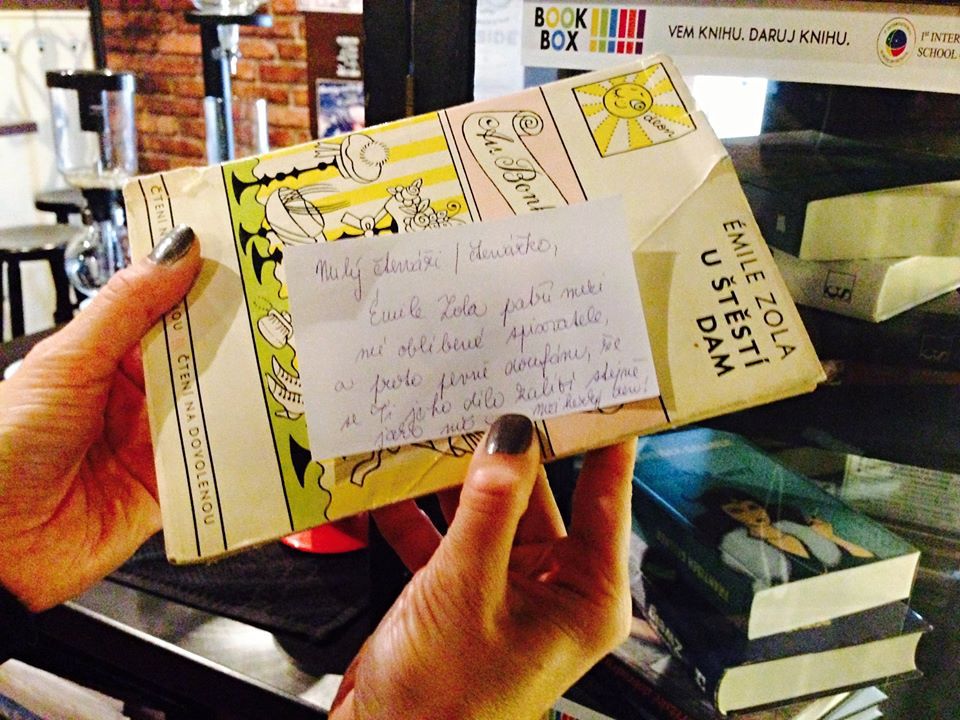 BOOK
BOX
VEM KNIHU. DARUJ KNIHU.
1st INTER
SCHOOL
dion
Au Bon
ÉMILE ZOLA
U ŠTĚSTÍ
DAM
ČTENÍ N
OU ČTENÍ NA DOVOLENOU
Milý čtenáři / čtenářko,
Émile Zola patří mezi
mé oblíbené spisovatele,
a proto pevně doufám, že
se Ti jeho dílo zalíbí stejně
jako mě
Měj hezký den!